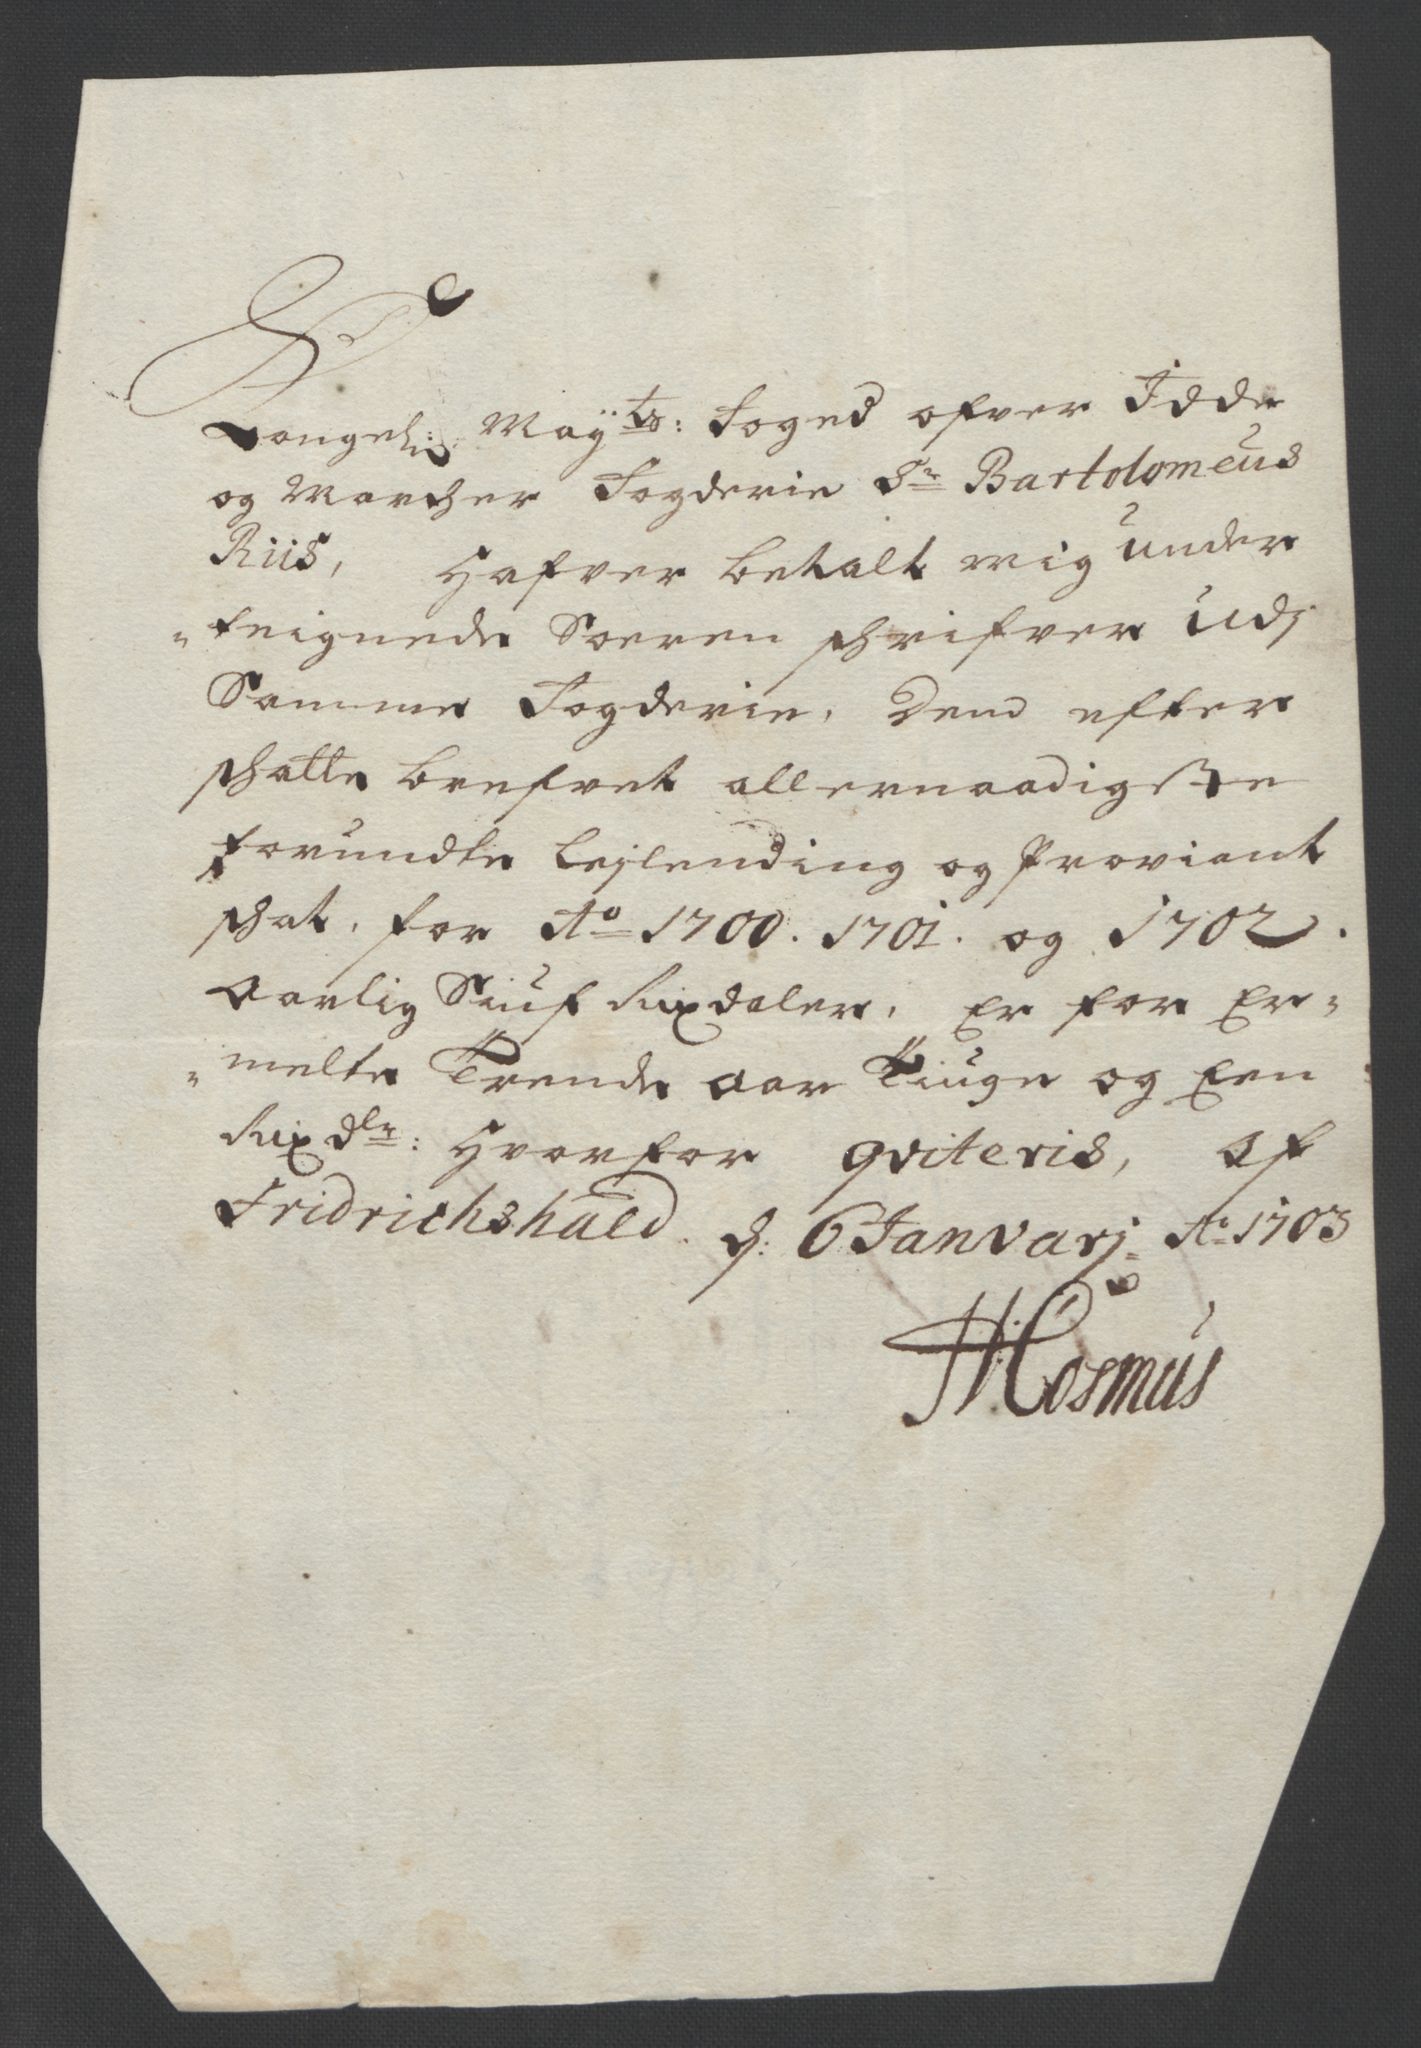 Kongel: Maÿts: Foged ofver Idde
og Marcher Fogderie Sr Bartolomeus
Riis, Hafver betalt mig under
-teignede Soeren schrifver udj
Samme Fogderie, Dend efter
schatte brefvet allernaadigste
forundte Lejlending og Proviant
schat, for Ao 1700. 1701. og 1702.
Aarlig Siuf Rixdaler, Er for Er-
-melte Trende Aar Tiuge og Een
Rixdlr: Hvorfor qviteris, Af
Fridrichshald. d: 6 Janvarj Ao 1703
HCosmus